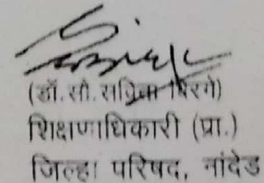 (डॉ. सौ. सविता बिरगे)
शिक्षणाधिकारी (प्रा.)
जिल्हा परिषद, नांदेड